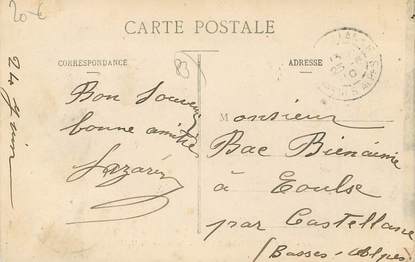 20 €
CARTE POSTALE
CORRESPONDANCE
ADRESSE
24 Juin
Bon Souvenir
bonne amitié
Lazare
Monsieur
Bac Bienaimé
à Eoulx
par Castellane
(Basses-Alpes)